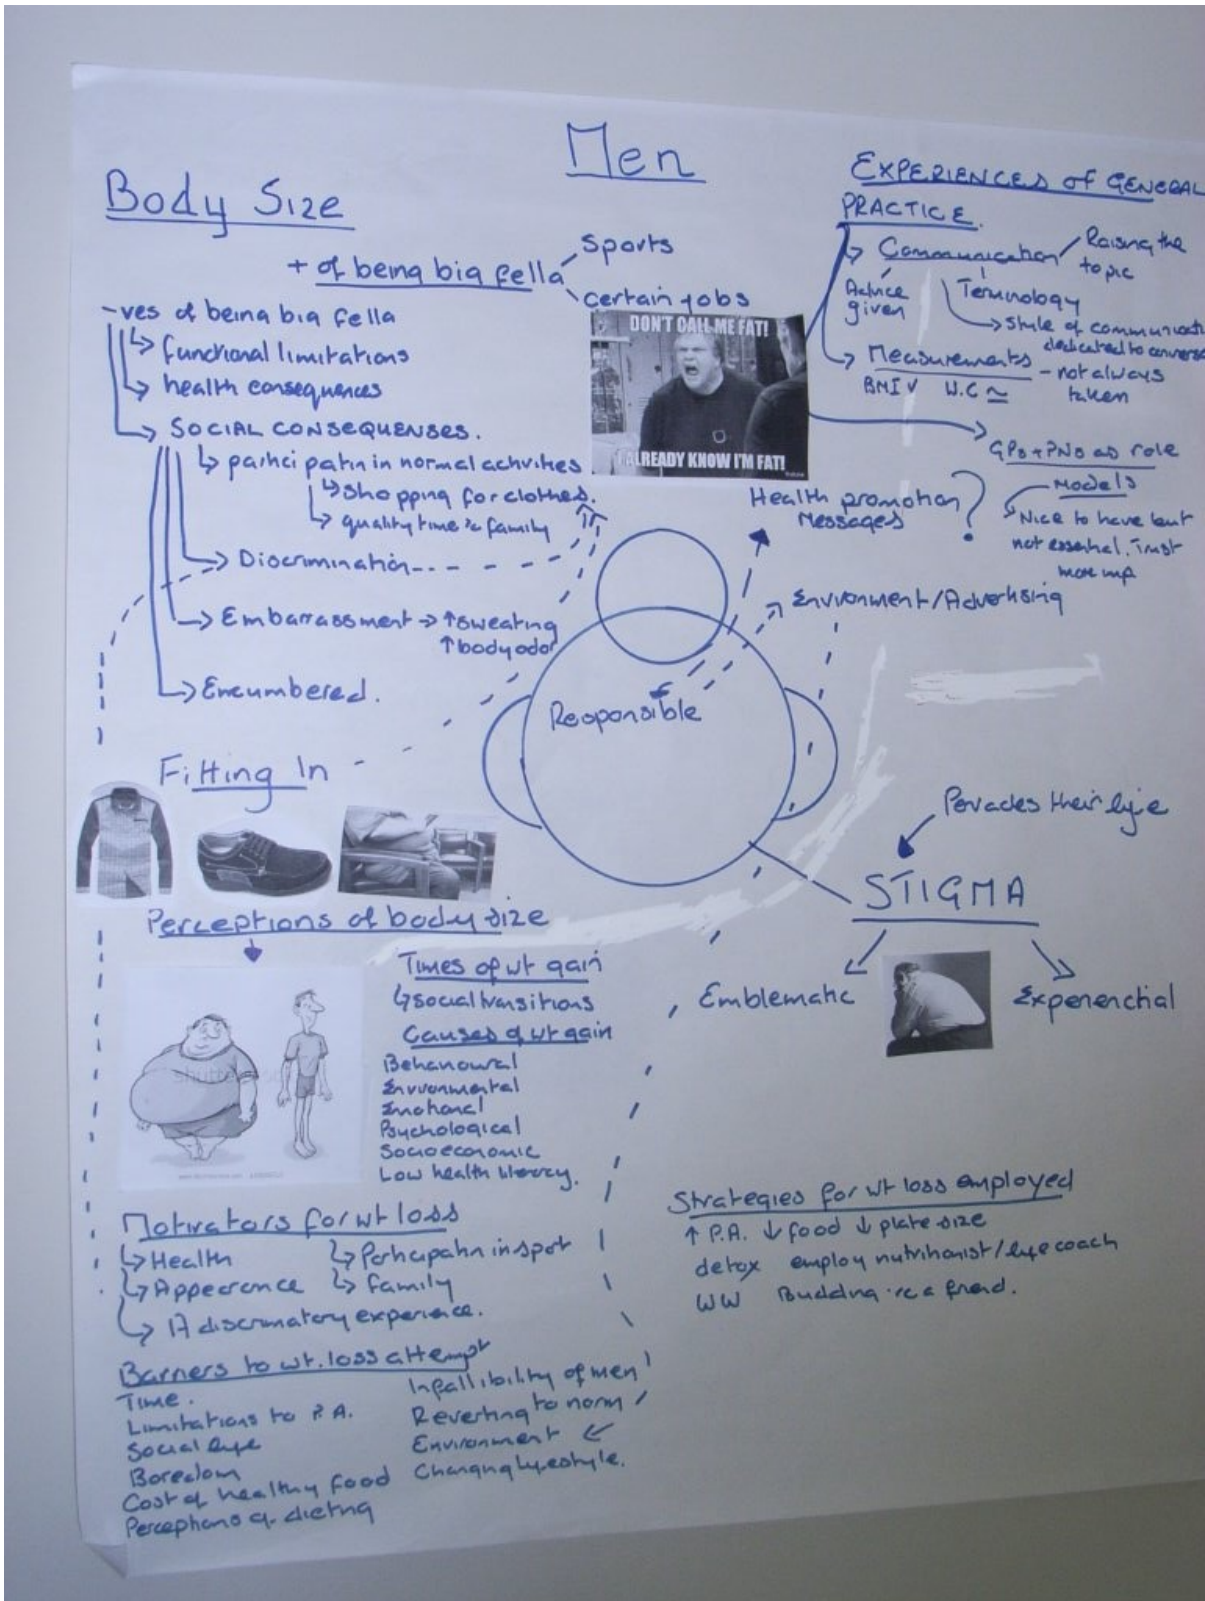 Men
Body Size
+ of being big fella
Sports
certain jobs
-ves of being big fella
functional limitations
health consequences
SOCIAL CONSEQUENSES.
participatn in normal activities
shopping for clothes.
quality time c family
Discrimination
Embarrassment → ↑sweating
↑body odor
Encumbered.
DON'T CALL ME FAT!
I ALREADY KNOW I'M FAT!
EXPERIENCES OF GENERAL
PRACTICE.
Communication
Raising the
topic
Advice
given
Terminology
Style of communicati
dedicated to convers
Measurements - not always
taken
BMI ✓ W.C ≃
GPs + PNs as role
Models
Nice to have but
not essential. Trust
more imp
Health promotion
Messages
?
Environment/Advertising
Responsible
Fitting In
Perceptions of body size
Times of wt gain
social transitions
Causes of wt gain
Behavioural
Environmental
Emotional
Psychological
Socioeconomic
Low health literacy.
Pervades their life
STIGMA
Emblematic
Experiential
Motivators for wt loss
Health
Participatn in sport
Appearance
family
discrimatory experience.
Strategies for wt loss employed
↑ P.A. ↓ food ↓ plate size
detox employ nutritionist/life coach
WW Budding c a friend.
Barriers to wt. loss attempt
Time.
Limitations to P.A.
Social life
Boredom
Cost of healthy food
Perceptions of dieting
Infallibility of men
Reverting to norm
Environment
Changing lifestyle.